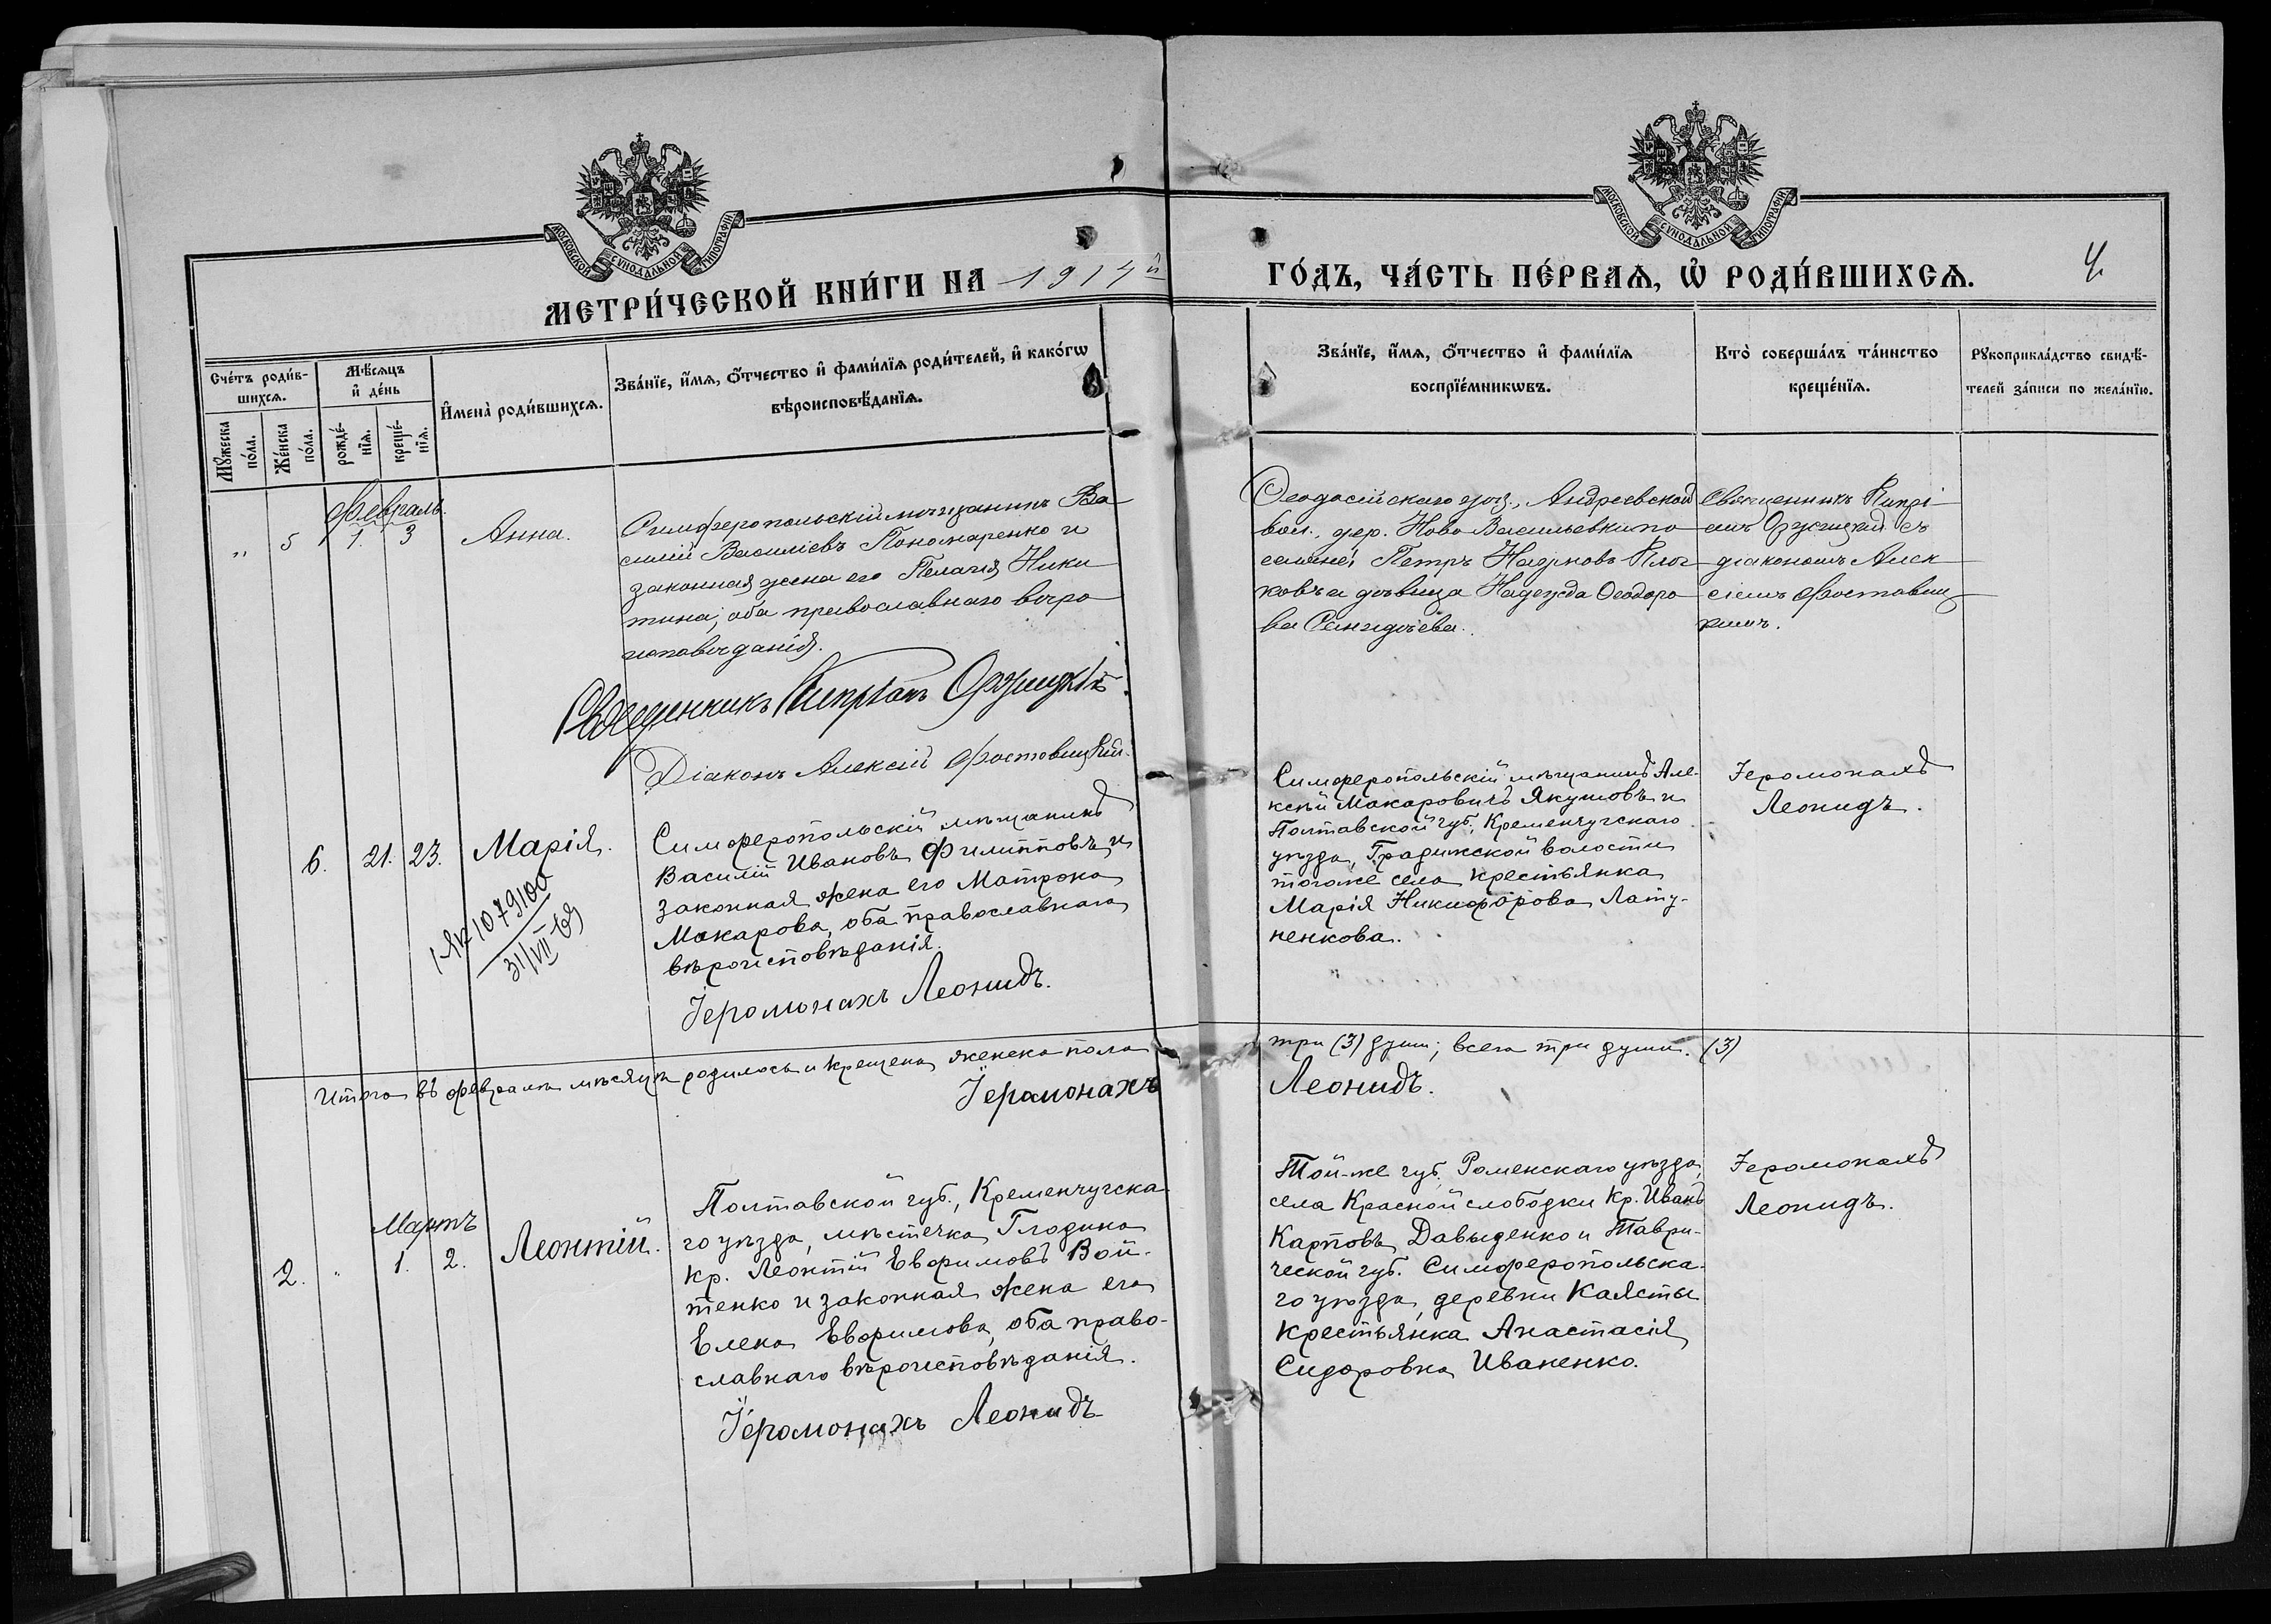 МОСКОВСКОЙ СѴНОДАЛЬНОЙ ТИПОГРАФІИ
МОСКОВСКОЙ СѴНОДАЛЬНОЙ ТИПОГРАФІИ
МЕТРИ́ЧЕСКОЙ КНИ́ГИ НА 1914й ГО́ДЪ, ЧА́СТЬ ПЕ́РВАѦ, Ѡ҆ РОДИ́ВШИХСѦ.
4
Сче́тъ роди́в-
шихсѧ.
Мꙋ́жеска по́ла.
Же́нска по́ла.
Мѣ́сѧцъ
и҆ де́нь
рожде́-
нїѧ.
креще́-
нїѧ.
И҆мена̀ роди́вшихсѧ.
Зва́нїе, и҆́мѧ, ѻ҆́тчество и҆ фами́лїѧ роди́телей, и҆ како́гѡ
вѣроисповѣ́данїѧ.
Зва́нїе, и҆́мѧ, ѻ҆́тчество и҆ фами́лїѧ
воспрїе́мникѡвъ.
Кто̀ соверша́лъ та́инство
креще́нїѧ.
Рꙋкоприкла́дство свидѣ́-
телей за́писи по жела́нїю.
Февраль.
" 5 1. 3 Анна.
Симферопольскій мѣщанинъ Ва
силій Василіевъ Пономаренко и
законная жена его Пелагія Ники
тина; оба православнаго вѣро
исповѣданія.
Священникъ Кипріанъ
Діаконъ Алексій Фостовицкій.
Ѳеодосійскаго уѣз., Андреевской
вол., дер. Ново Васильевки по
селяне: Петръ
и дѣвица Надежда Ѳеодоро
ва
Священникъ Кипрі-
съ
діакономъ Алек
сіемъ Фостовиц
кимъ.
6. 21. 23. Марія.
1079100
31/VII 69
Симферопольскій мѣщанинъ
Василій Ивановъ Филипповъ и
законная жена его Матрона
Макарова, оба православнаго
вѣроисповѣданія.
Іеромонахъ Леонидъ.
Симферопольскій мѣщанинъ Але-
ксѣй Макаровичъ Якушовъ и
Полтавской губ., Кременчугскаго
уѣзда, Градижской волости
тогоже села крестьянка
Марія Никифорова Лату-
ненкова.
Іеромонахъ
Леонидъ.
Итого въ февралѣ мѣсяцѣ родилось и крещено женска пола три (3) души; всего три души. (3)
Іеромонахъ Леонидъ.
Мартъ
2. " 1. 2. Леонтій.
Полтавской губ., Кременчугска-
го уѣзда, мѣстечка Глодина
кр. Леонтій Евфимовъ Вой-
тенко и законная жена его
Елена Евфимова, оба право-
славнаго вѣроисповѣданія.
Іеромонахъ Леонидъ
Той-же губ. Роменскаго уѣзда,
села Красной слободки кр. Иванъ
Карповъ Давыденко и Таври-
ческой губ. Симферопольска-
го уѣзда, деревни Каясты
крестьянка Анастасія
Сидоровна Иваненко.
Іеромонахъ
Леонидъ.